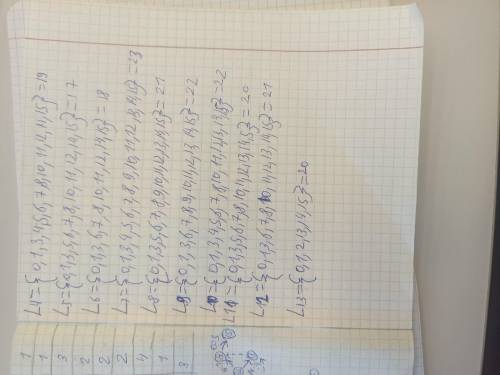 L4={0,1,3,4,5,6,7,8,10,11,12,14,15}=19
L5={0,1,3,5,6,7,8,10,11,12,14,15}=17
L6={0,1,3,6,7,8,10,11,12,14,15}=18
L7={0,1,3,4,5,6,7,8,9,10,11,12,13,14,15}=23
L8={0,1,3,5,6,7,8,9,10,11,12,13,14,15}=21
L9={0,1,3,6,7,8,9,10,11,12,13,14,15}=22
L10={0,1,3,4,5,6,7,8,10,11,12,13,15}=22
L11={0,1,3,5,6,7,8,10,11,12,13,14,15}=20
L12={0,1,3,6,7,8,10,11,12,13,14,15}=21
L13={0,1,2,13,14,15}=20
1
1
3
2
2
2
4
1
3